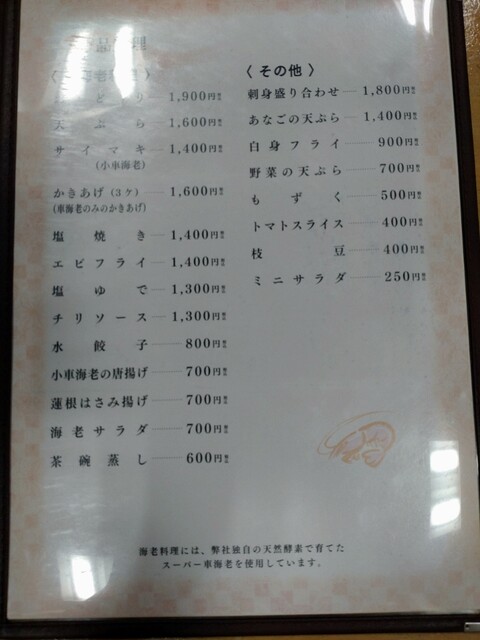 品料理
1,900円
天ぷら 1,600円
サイマキ 1,400円
(小車海老)
かきあげ(3ケ) 1,600円
(車海老のみのかきあげ)
塩焼き 1,400円
エビフライ 1,400円
塩ゆで 1,300円
チリソース 1,300円
水餃子 800円
小車海老の唐揚げ 700円
蓮根はさみ揚げ 700円
海老サラダ 700円
茶碗蒸し 600円
〈その他〉
刺身盛り合わせ 1,800円
あなごの天ぷら 1,400円
白身フライ 900円
野菜の天ぷら 700円
もずく 500円
トマトスライス 400円
枝豆 400円
ミニサラダ 250円
海老料理には、弊社独自の天然酵素で育てた
スーパー車海老を使用しています。